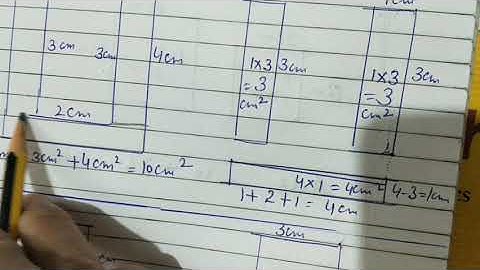 1cm
3cm 3cm 4cm
1×3 3cm
= 3
cm²
1×3 3cm
= 3
cm²
2cm
3cm² + 4cm² = 10cm²
4×1 = 4cm² 4-3=1cm
1 + 2 + 1 = 4cm
3cm
cm